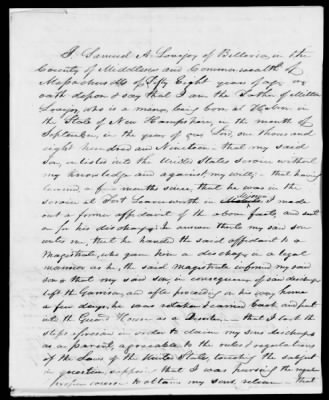 I, Samuel A. Lovejoy of Billerica, in the
County of Middlesex and Commonwealth of
Massachusetts of Fifty Eight years of age, on
oath depose & say that I am the Father of Milton
Lovejoy who is a minor, being born at Hebron in
the State of New Hampshire, in the month of
September, in the year of our Lord, one thousand
eight hundred and Nineteen - that my said
son, enlisted into the United States service without
my knowledge and against my will; - that having
learned a few months since, that he was in the
service at Fort Leavenworth in Missouri I made
out a former affidavit of the above facts, and sent
on for his discharge; In answer that my said son
writes me, that he handed the said affidavit to a
Magistrate, who gave him a discharge in a legal
manner as he, the said Magistrate informed my said
son; that my said son in consequence of said discharge
left the Garrison, and after proceeding on his way home
a few days, he was retaken & carried back and put
into the Guard House as a Deserter - that I took the
steps aforesaid in order to claim my sons discharge
as a parent, agreeable to the rules & regulations
of the Laws of the United States, touching the subject
in question, supposing that I was pursuing the regular
proper course to obtain my sons release - that